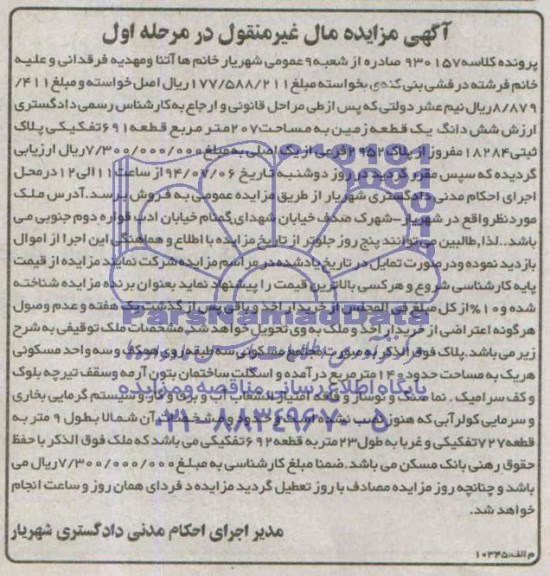 آگهی مزایده مال غیرمنقول در مرحله اول
پرونده کلاسه ۹۳۰۱۵۷ صادره از شعبه ۹ عمومی شهریار خانم ها آتنا ومهدیه فرقدانی و علیه
خانم فرشته درفشی بنی کندی بخواسته مبلغ ۱۷۷/۵۸۸/۲۱۱ ریال اصل خواسته و مبلغ ۴۱۱/
۸/۸۷۹ ریال نیم عشر دولتی که پس از طی مراحل قانونی و ارجاع به کارشناس رسمی دادگستری
ارزش شش دانگ یک قطعه زمین به مساحت ۲۰۷ متر مربع قطعه ۶۹۱ تفکیکی پلاک
ثبتی ۱۸۲۸۴ مفروز از پلاک ۲۹۵۲ فرعی از یک اصلی به مبلغ ۷/۳۰۰/۰۰۰/۰۰۰ ریال ارزیابی
گردیده که سپس مقرر گردید در روز دوشنبه تاریخ ۹۴/۰۷/۰۶ از ساعت ۱۱ الی ۱۲ در محل
اجرای احکام مدنی دادگستری شهریار از طریق مزایده عمومی به فروش برسد. آدرس ملک
موردنظر واقع در شهریار-شهرک صدف خیابان شهدای گمنام خیابان ادب قواره دوم جنوبی می
باشد. لذا، طالبین می توانند پنج روز جلوتر از تاریخ مزایده با اطلاع و هماهنگی این اجرا از اموال
بازدید نموده و در صورت تمایل در تاریخ یادشده در مراسم مزایده شرکت نمایند مزایده از قیمت
پایه کارشناسی شروع و هرکسی بالاترین قیمت را پیشنهاد نماید بعنوان برنده مزایده شناخته
شده و ۱۰٪ از کل مبلغ فی المجلس از خریدار اخذ و باقی پس از گذشت یک هفته و عدم وصول
هرگونه اعتراضی از خریدار اخذ و ملک به وی تحویل خواهد شد. مشخصات ملک توقیفی به شرح
زیر می باشد. پلاک فوق الذکر به صورت مجتمع مسکونی سه طبقه روی و سه واحد مسکونی
هریک به مساحت حدود ۱۴۰ متر مربع در آمده و اسکلت ساختمان بتون آرمه وسقف تیرچه بلوک
و کف سرامیک . نما سنگ و نوساز و فاقد امتیاز انشعاب آب و برق و گاز و سیستم گرمایی بخاری
و سرمایی کولر آبی که هنوز نصب نشده است و حدود و مشخصات آن شمالا بطول ۹ متر به
قطعه ۷۲۷ تفکیکی و غربا به طول ۲۳ متر به قطعه ۶۹۲ تفکیکی می باشد که ملک فوق الذکر با حفظ
حقوق رهنی بانک مسکن می باشد. ضمنا مبلغ کارشناسی به مبلغ ۷/۳۰۰/۰۰۰/۰۰۰ ریال می
باشد و چنانچه روز مزایده مصادف با روز تعطیل گردید مزایده در فردای همان روز و ساعت انجام
خواهد شد.
مدیر اجرای احکام مدنی دادگستری شهریار
م الف: ۱۰۳۴۵
ParsNamadData
پایگاه اطلاع رسانی مناقصه و مزایده
۰۲۱-۸۸۳۴۹۶۷۰-۵